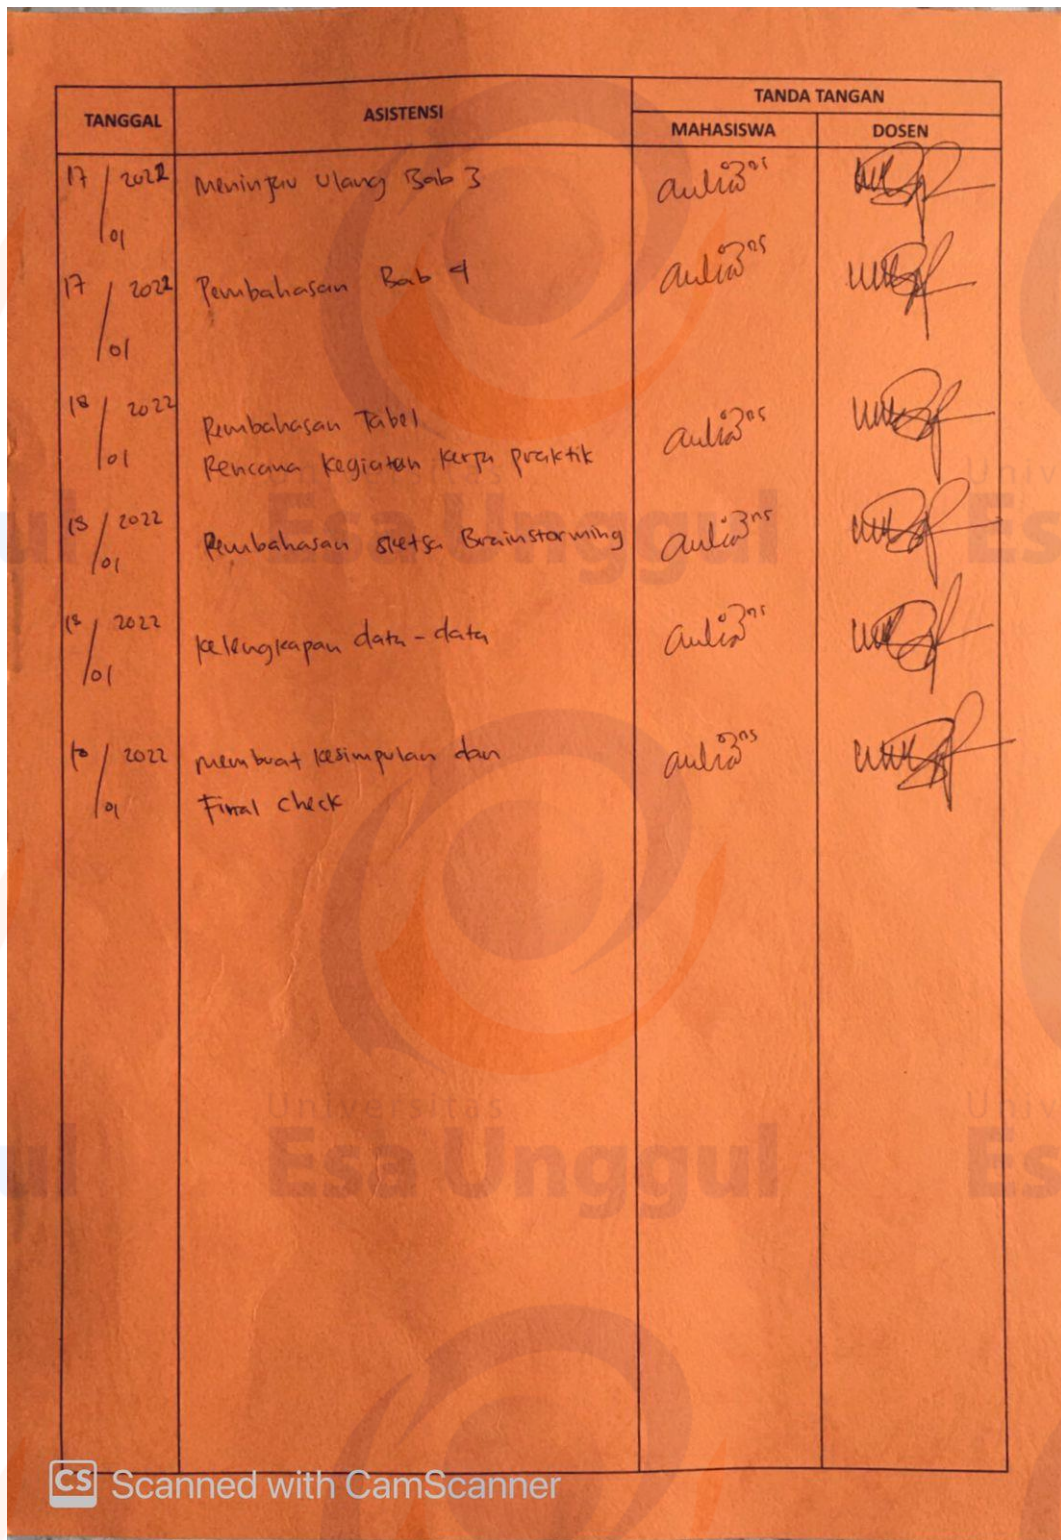 TANGGAL
ASISTENSI
TANDA TANGAN
MAHASISWA
DOSEN
17 / 2022 Meninjau Ulang Bab 3
/01
17 / 2022 Pembahasan Bab 4
/01
18 / 2022
Pembahasan Tabel
/01
Rencana Kegiatan Kerja praktik
18 / 2022
Pembahasan sketsa Brainstorming
/01
18 / 2022
kelengkapan data-data
/01
/ 2022 membuat kesimpulan dan
/01
Final check
Universitas
Esa Unggul
Universitas
Esa Unggul
CS Scanned with CamScanner